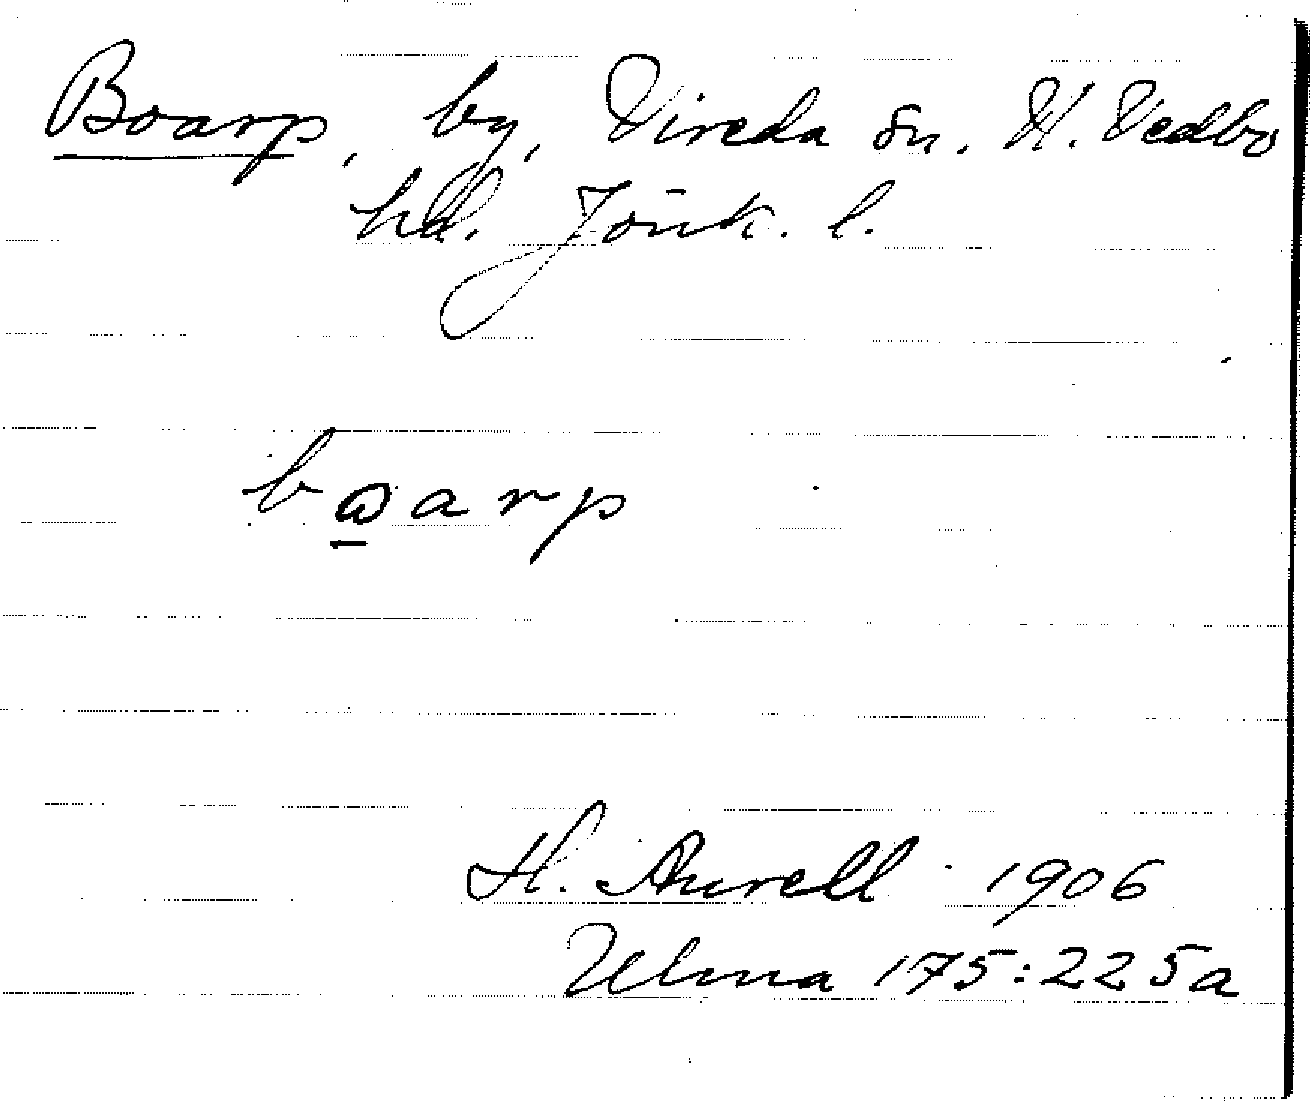 Boarp, by, Vireda sn. N. Vedbo
hd. Jönk. l.
bɷarp
H. Aurell 1906
Ulma 175:225a